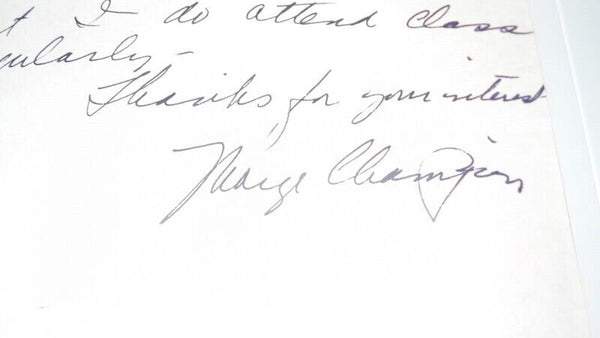 t I do attend class
gularly -
Thanks for your interest
Marge Champion